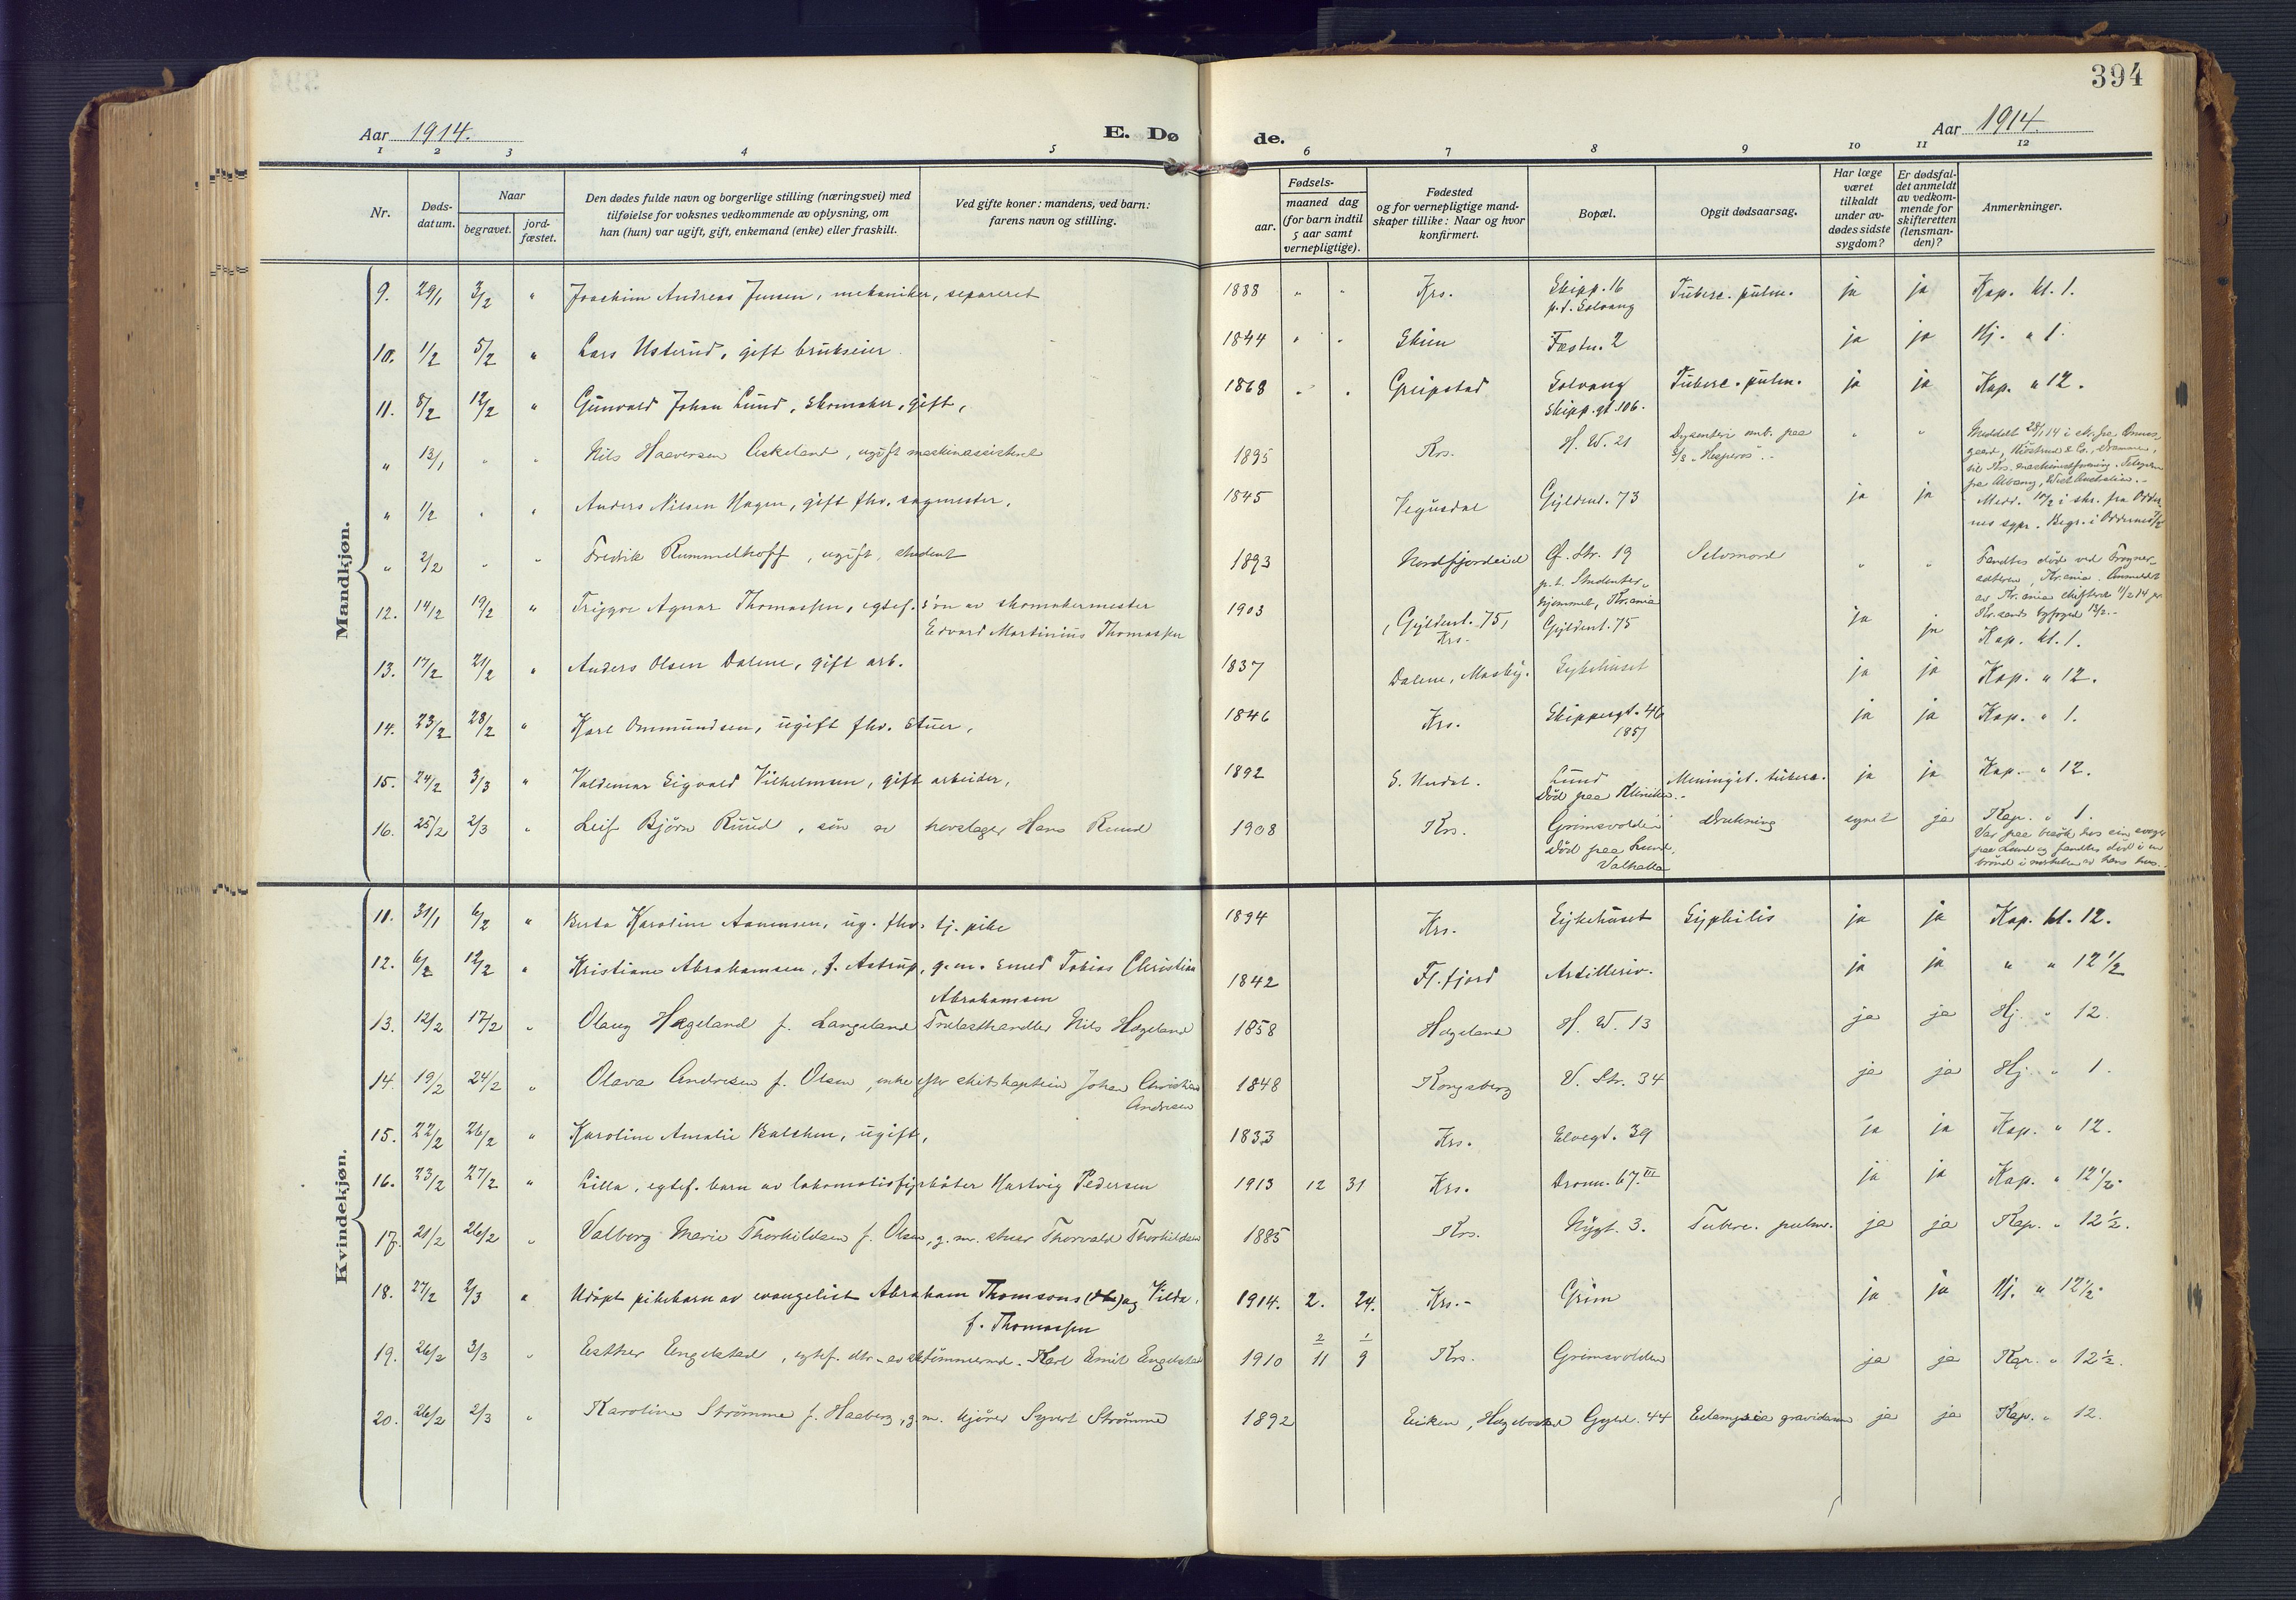 394
Aar 1914.
E. Dø de.
Aar 1914.
1 2 3 4 5 6 7 8 9 10 11 12
Nr.
Døds-
datum.
Naar
begravet.
jord-
fæstet.
Den dødes fulde navn og borgerlige stilling (næringsvei) med
tilføielse for voksnes vedkommende av oplysning, om
han (hun) var ugift, gift, enkemand (enke) eller fraskilt.
Ved gifte koner: mandens, ved barn:
farens navn og stilling.
Fødsels-
aar.
maaned dag
(for barn indtil
5 aar samt
vernepligtige).
Fødested
og for vernepligtige mand-
skaper tillike: Naar og hvor
konfirmert.
Bopæl.
Opgit dødsaarsag.
Har læge
været
tilkaldt
under av-
dødes sidste
sygdom?
Er dødsfal-
det anmeldt
av vedkom-
mende for
skifteretten
(lensman-
den)?
Anmerkninger.
Mandkjøn.
9. 29/1 3/2 " Joachim Andreas Jensen, mekaniker, separeret 1888 " " Krs. Skipp. 16 Tuberc. pulm. ja ja Kap. kl. 1.
p.t. Solvang
10. 1/2 5/2 " Lars Usterud, gift brukseier 1844 " " Skien Fæstn. 2 ja ja Hj. " 1.
11. 8/2 12/2 " Gunvald Johan Lund, skomaker, gift, 1868 " " Greipstad Solvang Tuberc. pulm. ja ja Kap. " 12.
Skipp.gt. 106.
" 13/1 " " Nils Haaversen Askeland, ugift maskinassistent 1895 Krs. H. W. 21 Dysenteri omb. paa " " Meddelt 28/1 14 i skr. fra
S/S "Hesperos".
til Krs. maskinistforening. Telegram
fra Albany, West Australien.-
" 1/2 " " Anders Nilsen Hagen, gift fhv. sagmester. 1845 Vegusdal Gyldenl. 73 ja ja Medd. 10/2 i skr. fra Odder
nes sgpr. Begr. i Oddernes
" 2/2 " " Fredrik Rummelhoff, ugift, student 1893 Nordfjordeid Ø. Str. 19 Selvmord " " Fandtes død ved Frogner-
p.t. Studenter-
hjemmet, Kr.ania
sæteren, Kr.ania. Anmeldt
av Kr.ania skifteret 11/2 14 for
Kr.sands byfoged 13/2.-
12. 14/2 19/2 " Trygve Agnar Thomassen, egtef. søn av skomakermester 1903 Gyldenl. 75, Gyldenl. 75 ja ja Kap. kl. 1.
Edvard Martinius Thomassen Krs.
13. 17/2 21/2 " Anders Olsen Dalene, gift arb. 1837 Dalene, Mosby. Sykehuset ja ja Kap. " 12.
14. 23/2 28/2 " Karl Ommundsen, ugift fhv. stuer, 1846 Krs. Skippergt. 46 ja ja Kap. " 1.
(85)
15. 24/2 3/3 " Valdemar Sigvald Vilhelmsen, gift arbeider, 1892 S. Undal. Lund Meningit. tuberc. ja ja Kap. " 12.
Død paa Kliniken.-
16. 25/2 2/3 " Leif Bjørn Ruud, søn av hovslager Hans Ruud 1908 Krs. Grimsvolden Drukning synet ja Kap. " 1.
Død paa Lund,
Valhalla
Var paa besøk hos sin svoger
paa Lund og fandtes død i en
brønd i nærheten av hans hus.-
Kvindekjøn.
11. 31/1 6/2 " Berta Karoline Aanensen, ug. fhv. tj. pike 1894 Krs. Sykehuset Syphilis ja ja Kap. kl. 12.
12. 6/2 12/2 " Kristiane Abrahamsen, f. Astrup, g.m. smed Tobias Christian 1842 Fl.fjord Artilleriv. ja ja " " 12 1/2
Abrahamsen
13. 12/2 17/2 " Olaug Hægeland f. Langeland Trælasthandler Nils Hægeland 1858 Hægeland H. W. 13 ja ja Hj. " 12.
14. 19/2 24/2 " Olava Andresen f. Olsen, enke efter skibskaptein Johan Christian 1848 Kongsberg V. Str. 34 ja ja Hj. " 1.
Andresen
15. 22/2 26/2 " Karoline Amalie Balchen, ugift, 1833 Krs. Elvegt. 39 ja ja Kap. " 12.
16. 23/2 27/2 " Lilla, egtef. barn av lokomotivfyrbøter Hartvig Pedersen 1913 12 31 Krs. Dronn. 67.III ja ja Kap. " 12 1/2.
17. 21/2 26/2 " Valborg Marie Thorkildsen f. Olsen, g.m. stuer Thorvald Thorkildsen 1885 Krs. Nygt. 3. Tuberc. pulm. ja ja Kap. " 12 1/2.
18. 27/2 2/3 " Udøpt pikebarn av evangelist Abraham Thomsons og Vilda, 1914. 2. 24. Krs.- Grim ja ja Hj. " 12 1/2.
f. Thomassen
19. 26/2 3/3 " Esther Engelstad, egtef. dtr. av tømmermd. Karl Emil Engelstad 1910 2/11 1/9 Krs. Grimsvolden ja ja Kap. " 12 1/2.
20. 26/2 2/3 " Karoline Strømme f. Haaberg, g.m. kjører Syvert Strømme 1892 Eiken, Hægebostad Gyld. 44 Eclampsia gravidarum ja ja Kap. " 12.